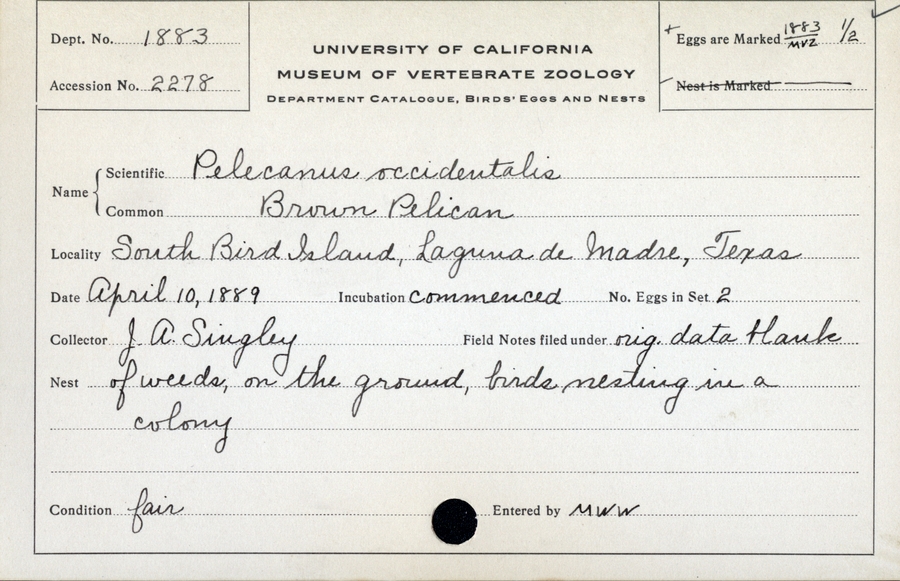 Dept. No. 1883
Accession No. 2278
UNIVERSITY OF CALIFORNIA
MUSEUM OF VERTEBRATE ZOOLOGY
DEPARTMENT CATALOGUE, BIRDS' EGGS AND NESTS
+ Eggs are Marked 1883/MVZ 1/2
Nest is Marked
Name { Scientific Pelecanus occidentalis
Common Brown Pelican
Locality South Bird Island, Laguna de Madre, Texas
Date April 10, 1889 Incubation commenced No. Eggs in Set 2
Collector J. A. Singley Field Notes filed under orig. data blank
Nest of weeds, on the ground, birds nesting in a
colony
Condition fair Entered by MWW